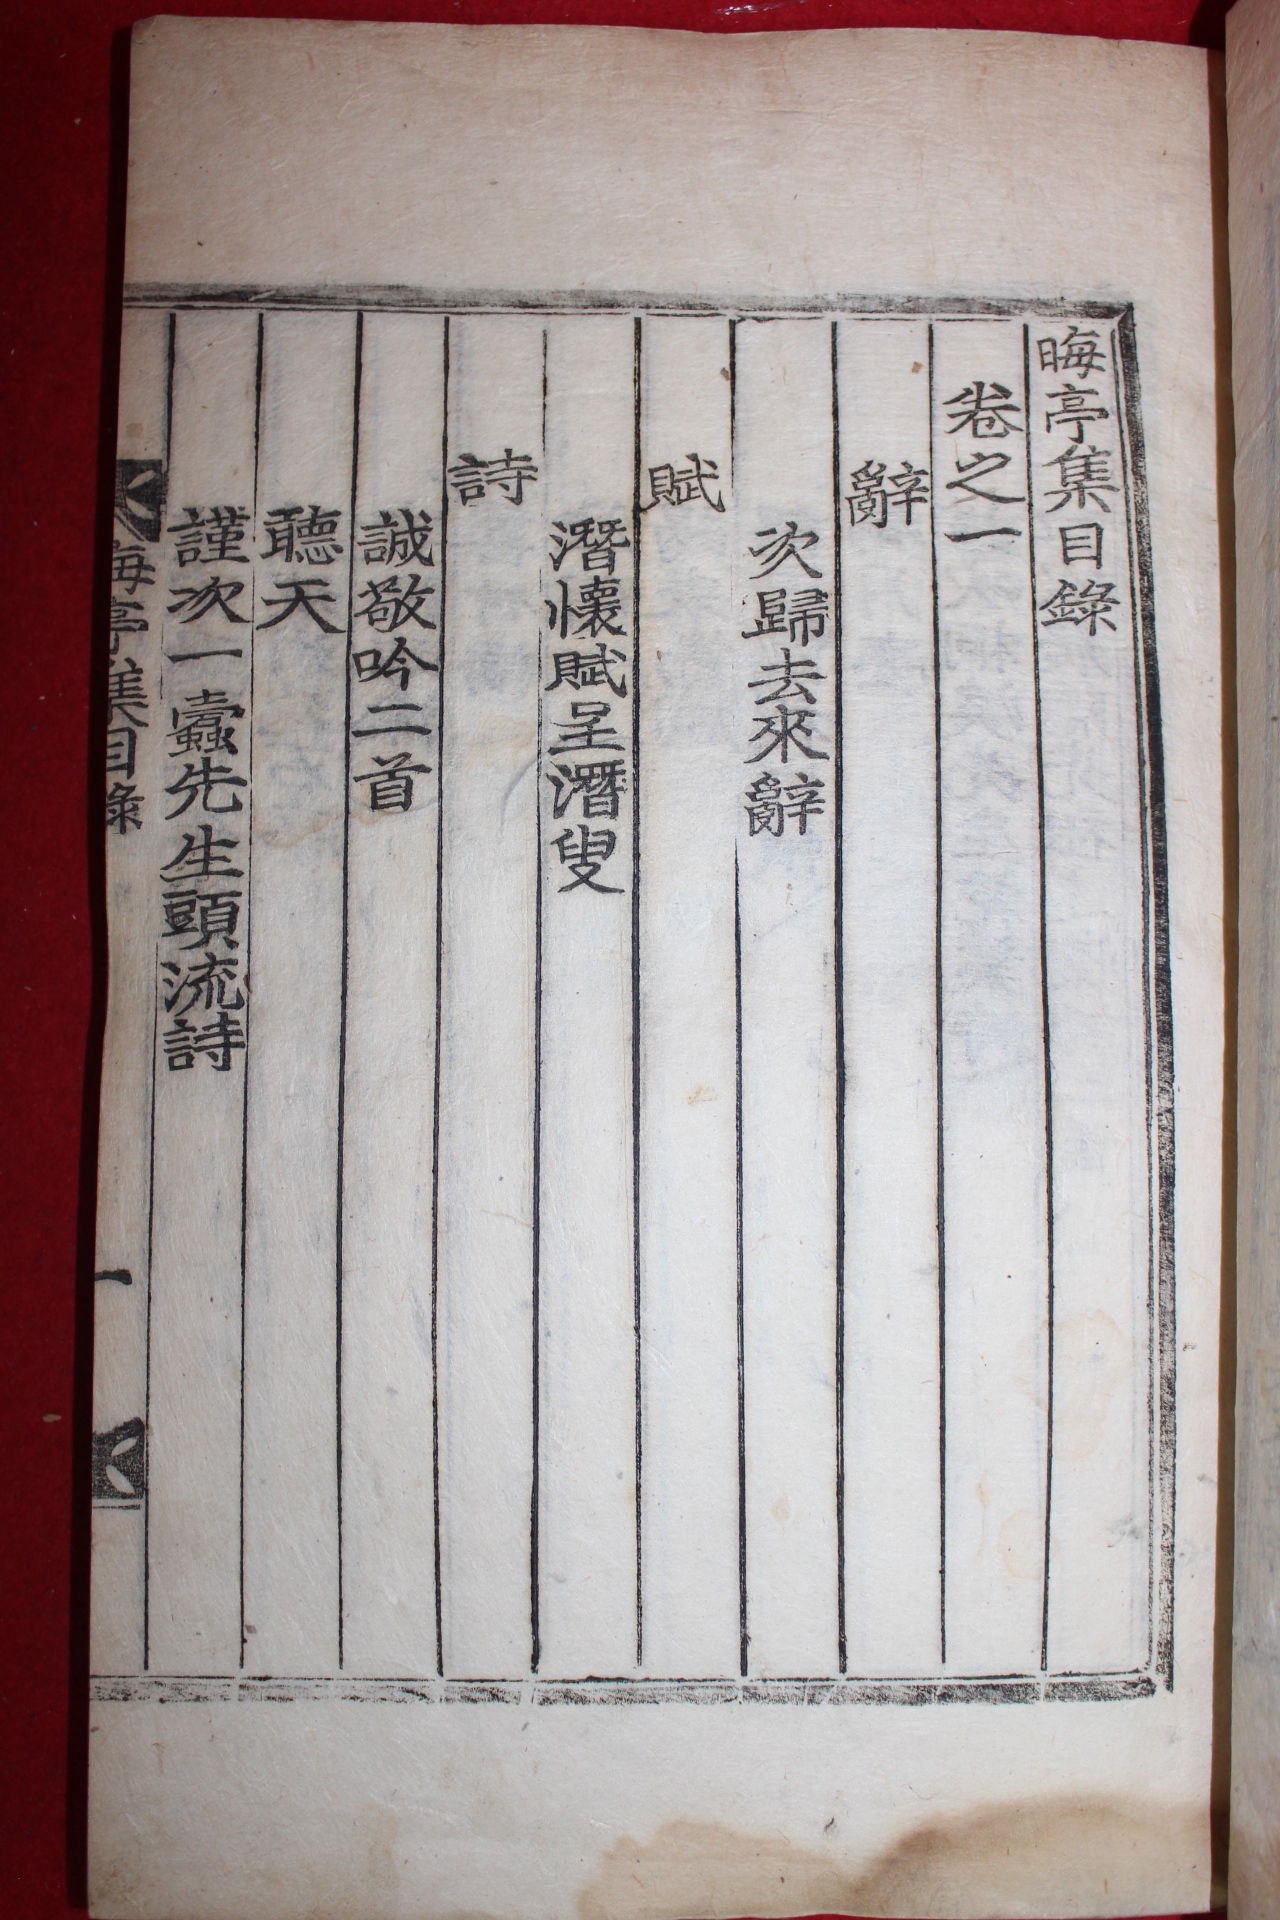 晦亭集目錄
卷之一
辭
次歸去來辭
賦
潛懷賦呈潛叟
詩
誠敬吟二首
聽天
謹次一蠹先生頭流詩
晦亭集目錄
一